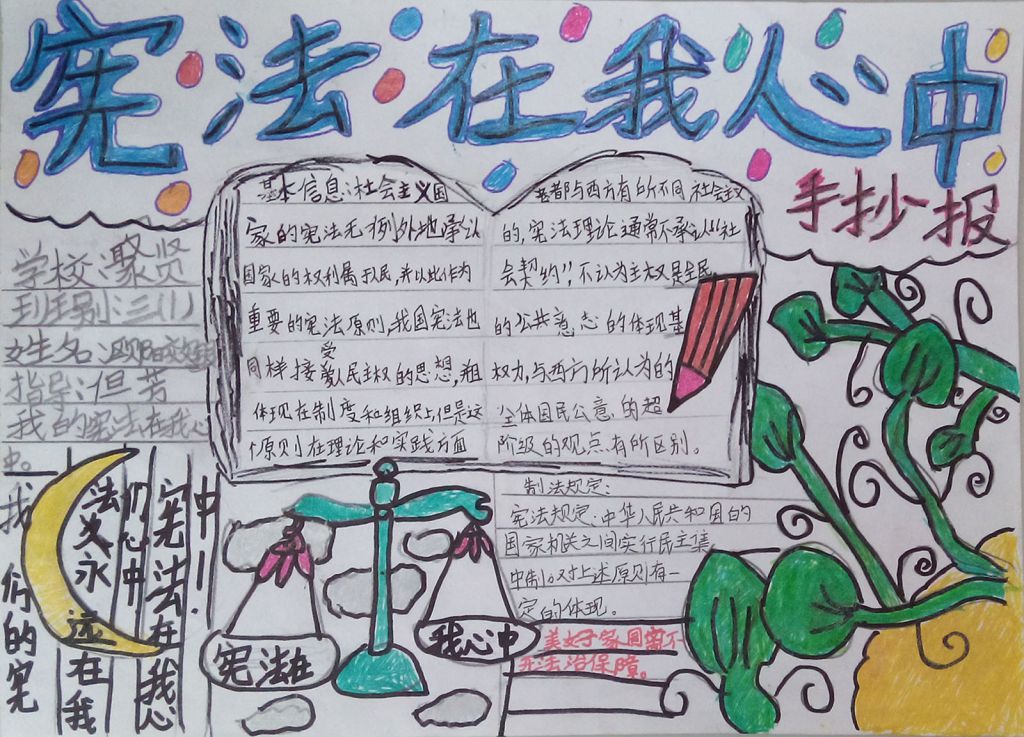 宪法在我心中
手抄报
学校:濑贤
班别:三(1)
姓名:欧阳
指导:但芳
我的宪法在我心
中。
基本信息:社会主义国
家的宪法无例外地承认
国家的权利属于人民,并以此作为
重要的宪法原则,我国宪法也
同样接受人民主权的思想,粗
体现在制度和组织上但是这
个原则在理论和实践方面
老都与西方有所不同社会主义
的,宪法理论通常不承认“社
会契约”,不认为主权是全民
的公共意志的体现基
权力,与西方所认为的
全体国民公意的超
阶级的观点有所区别。
制法规定:
宪法规定:中华人民共和国的
国家机关之间实行民主集
中制。对上述原则有一
定的体现。
美好家园离不
开法治保障。
宪法在
我心中
中!
宪法在我心
们心中
法义永远在我
我们的宪